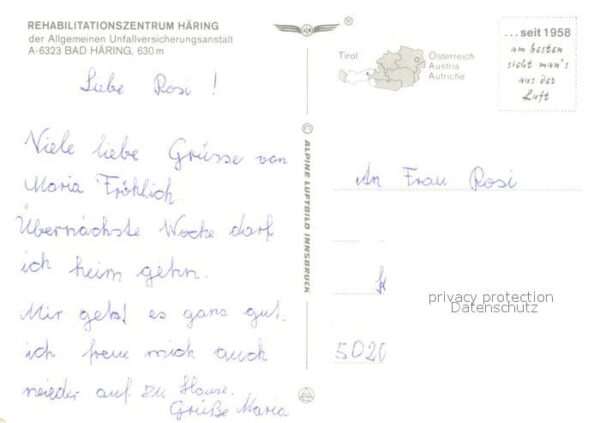 REHABILITATIONSZENTRUM HÄRING
der Allgemeinen Unfallversicherungsanstalt
A-6323 BAD HÄRING, 630 m
Liebe Rosi !
Viele liebe Grüsse von
Maria Fröhlich.
Übernächste Woche darf
ich heim gehn.
Mir geht es ganz gut.
ich freue mich auch
wieder auf zu Hause.
Grüße Maria
ALPINE LUFTBILD INNSBRUCK
Tirol
Österreich
Austria
Autriche
...seit 1958
am besten
sieht man's
aus der
Luft
An Frau Rosi
privacy protection
Datenschutz
5020